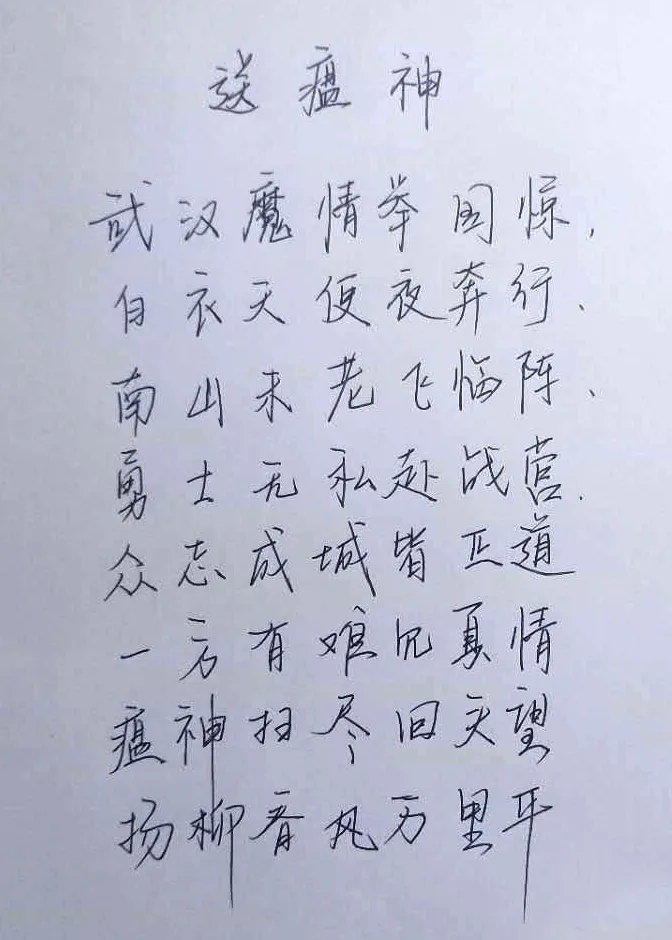 送瘟神
武汉魔情举国惊,
白衣天使夜奔行、
南山未老飞临阵、
勇士无私赴战营.
众志成城皆正道
一方有难见真情
瘟神扫尽回天望
扬柳春风万里平